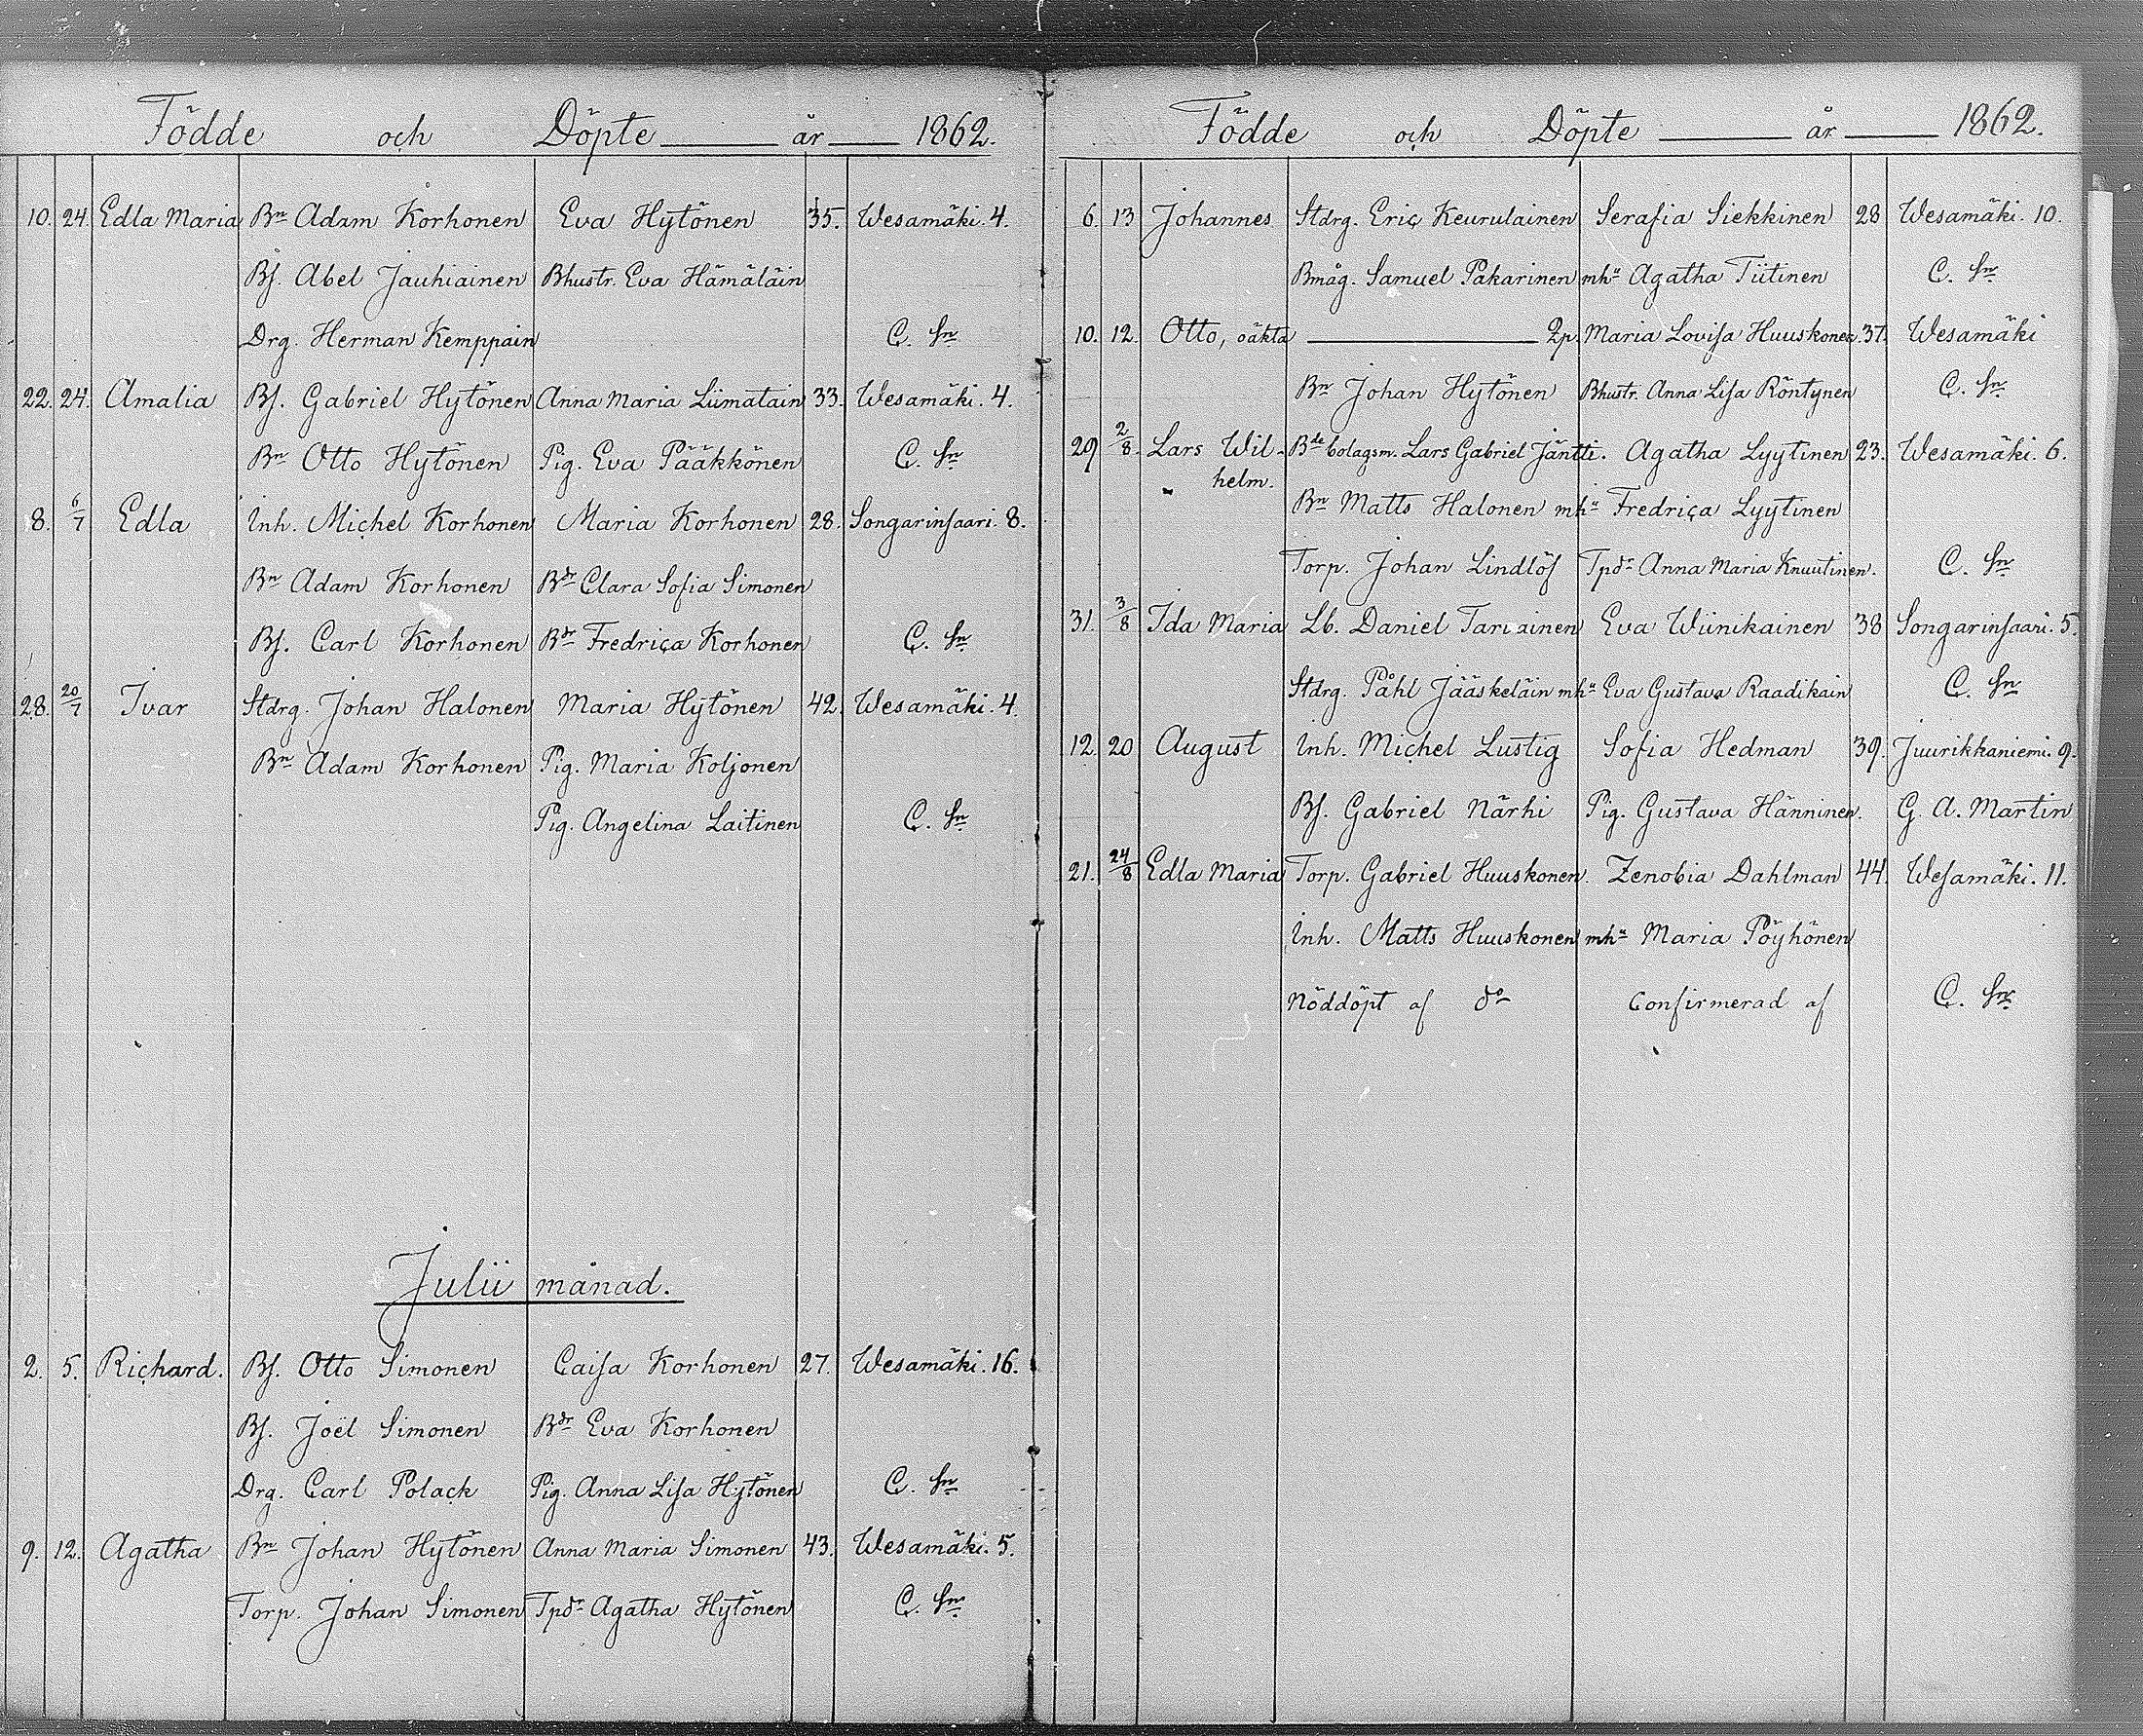 Födde och Döpte år 1862.
10. 24. Edla Maria Bn Adam Korhonen Eva Hytönen 35. Wesamäki. 4.
Bs. Abel Jauhiainen Bhustr. Eva Hämäläin
Drg. Herman Kemppain C. Sn
22. 24. Amalia Bs. Gabriel Hytönen Anna Maria Liimatain 33. Wesamäki. 4.
Bn Otto Hytönen Pig. Eva Pääkkönen C. Sn
8. 6/7 Edla Inh. Michel Korhonen Maria Korhonen 28. Songarinsaari. 8.
Bn Adam Korhonen Bdr Clara Sofia Simonen
Bs. Carl Korhonen Bdr Fredrica Korhonen C. Sn
28. 20/7 Ivar Stdrg. Johan Halonen Maria Hytönen 42. Wesamäki. 4.
Bn Adam Korhonen Pig. Maria Koljonen
Pig. Angelina Laitinen C. Sn
Julii månad.
2. 5. Richard. Bs. Otto Simonen Caisa Korhonen 27. Wesamäki. 16.
Bs. Joël Simonen Bdr Eva Korhonen
Drg. Carl Polack Pig. Anna Lisa Hytönen C. Sn
9. 12. Agatha Bn Johan Hytönen Anna Maria Simonen 43. Wesamäki. 5.
Torp. Johan Simonen Tpdr Agatha Hytönen C. Sn
Födde och Döpte år 1862.
6. 13 Johannes Stdrg. Eric Keurulainen Serafia Siekkinen 28 Wesamäki. 10.
Bmåg. Samuel Pakarinen mhu Agatha Tiitinen C. Sn
10. 12. Otto, oäkta 2p. Maria Lovisa Huuskonen. 37. Wesamäki
Bn Johan Hytönen Bhustr. Anna Lisa Röntynen C. Sn
29 2/8. Lars Wil- Bde bolagsm. Lars Gabriel Jäntti. Agatha Lyytinen 23. Wesamäki. 6.
helm. Bn Matts Halonen mhu Fredrica Lyytinen
Torp. Johan Lindlöf Tpdr Anna Maria Knuutinen. C. Sn
31. 3/8 Ida Maria Lb. Daniel Tarvainen Eva Wiinikainen 38 Songarinsaari. 5.
Stdrg. Påhl Jääskeläin mhu Eva Gustava Raadikain C. Sn
12. 20 August Inh. Michel Lustig Sofia Hedman 39. Juurikkaniemi. 9.
Bs. Gabriel Närhi Pig. Gustava Hänninen. G. A. Martin
21. 24/8 Edla Maria Torp. Gabriel Huuskonen. Zenobia Dahlman 44. Wesamäki. 11.
Inh. Matts Huuskonen mhu Maria Pöyhönen
Nöddöpt af do Confirmerad af C. Sn